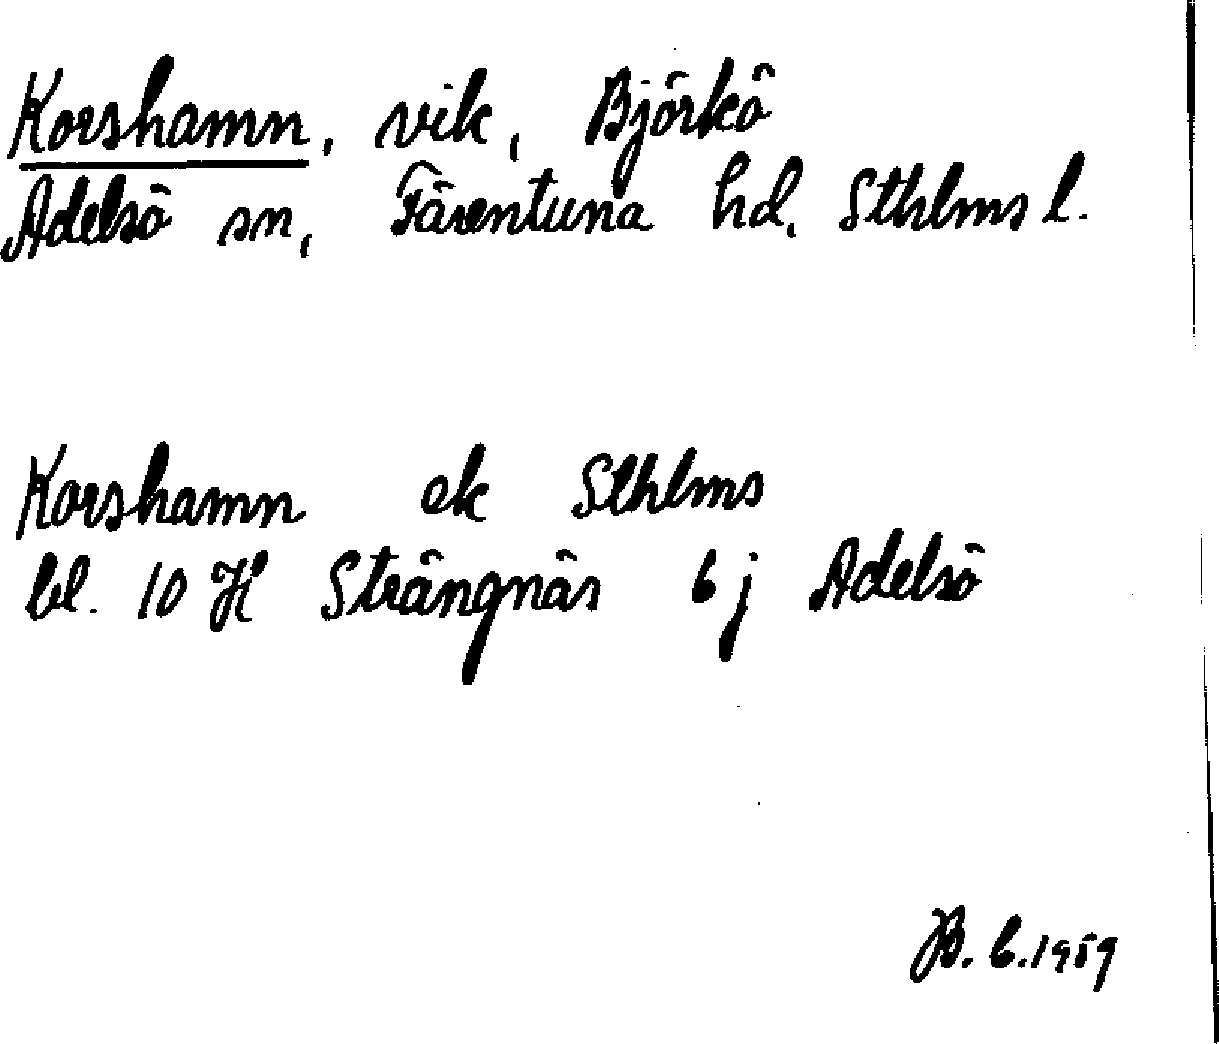 Korshamn, vik, Björkö
Adelsö sn, Färentuna hd, Sthlms l.
Korshamn ek Sthlms
bl. 10 H Strängnäs 6 j Adelsö
B. 6. 1959